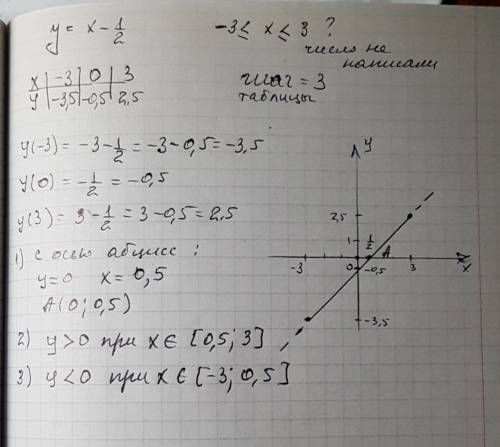 y = x - 1/2
-3 ≤ x ≤ 3 ?
число не
написали
x | -3 | 0 | 3
y | -3,5 | -0,5 | 2,5
шаг = 3
таблицы
y(-3) = -3 - 1/2 = -3 - 0,5 = -3,5
y(0) = - 1/2 = -0,5
y(3) = 3 - 1/2 = 3 - 0,5 = 2,5
1) с осью абцисс :
y=0 x = 0,5
A(0; 0,5)
2) y>0 при x ∈ [0,5; 3]
3) y<0 при x ∈ [-3; 0,5]
y
2,5
1
1/2
A
-3
0
-0,5
3
x
-3,5